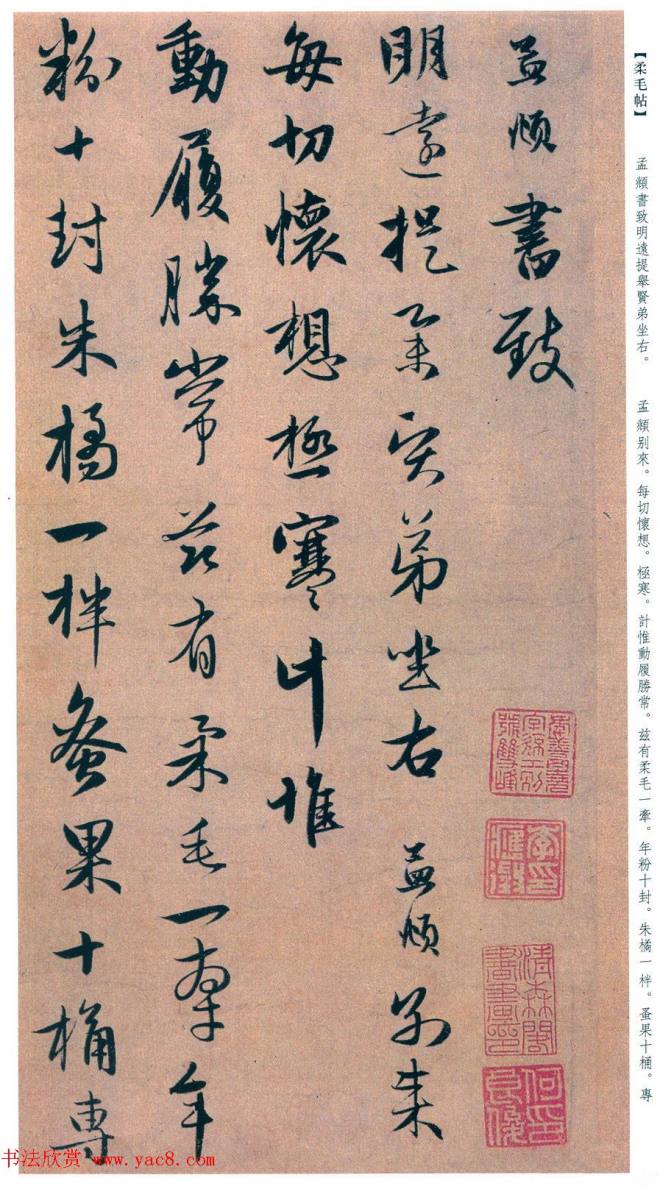 【柔毛帖】 孟頫書致明遠提舉賢弟坐右。 孟頫别來。每切懷想。極寒。計惟動履勝常。兹有柔毛一牽。年粉十封。朱橘一柈。蚤果十桶。專
孟頫書致
明遠提舉賢弟坐右 孟頫别來
每切懷想極寒計惟
動履勝常兹有柔毛一牽年
粉十封朱橘一柈蚤果十桶專
清森閣書畫印
何印良俊
书法欣赏 www.yac8.com